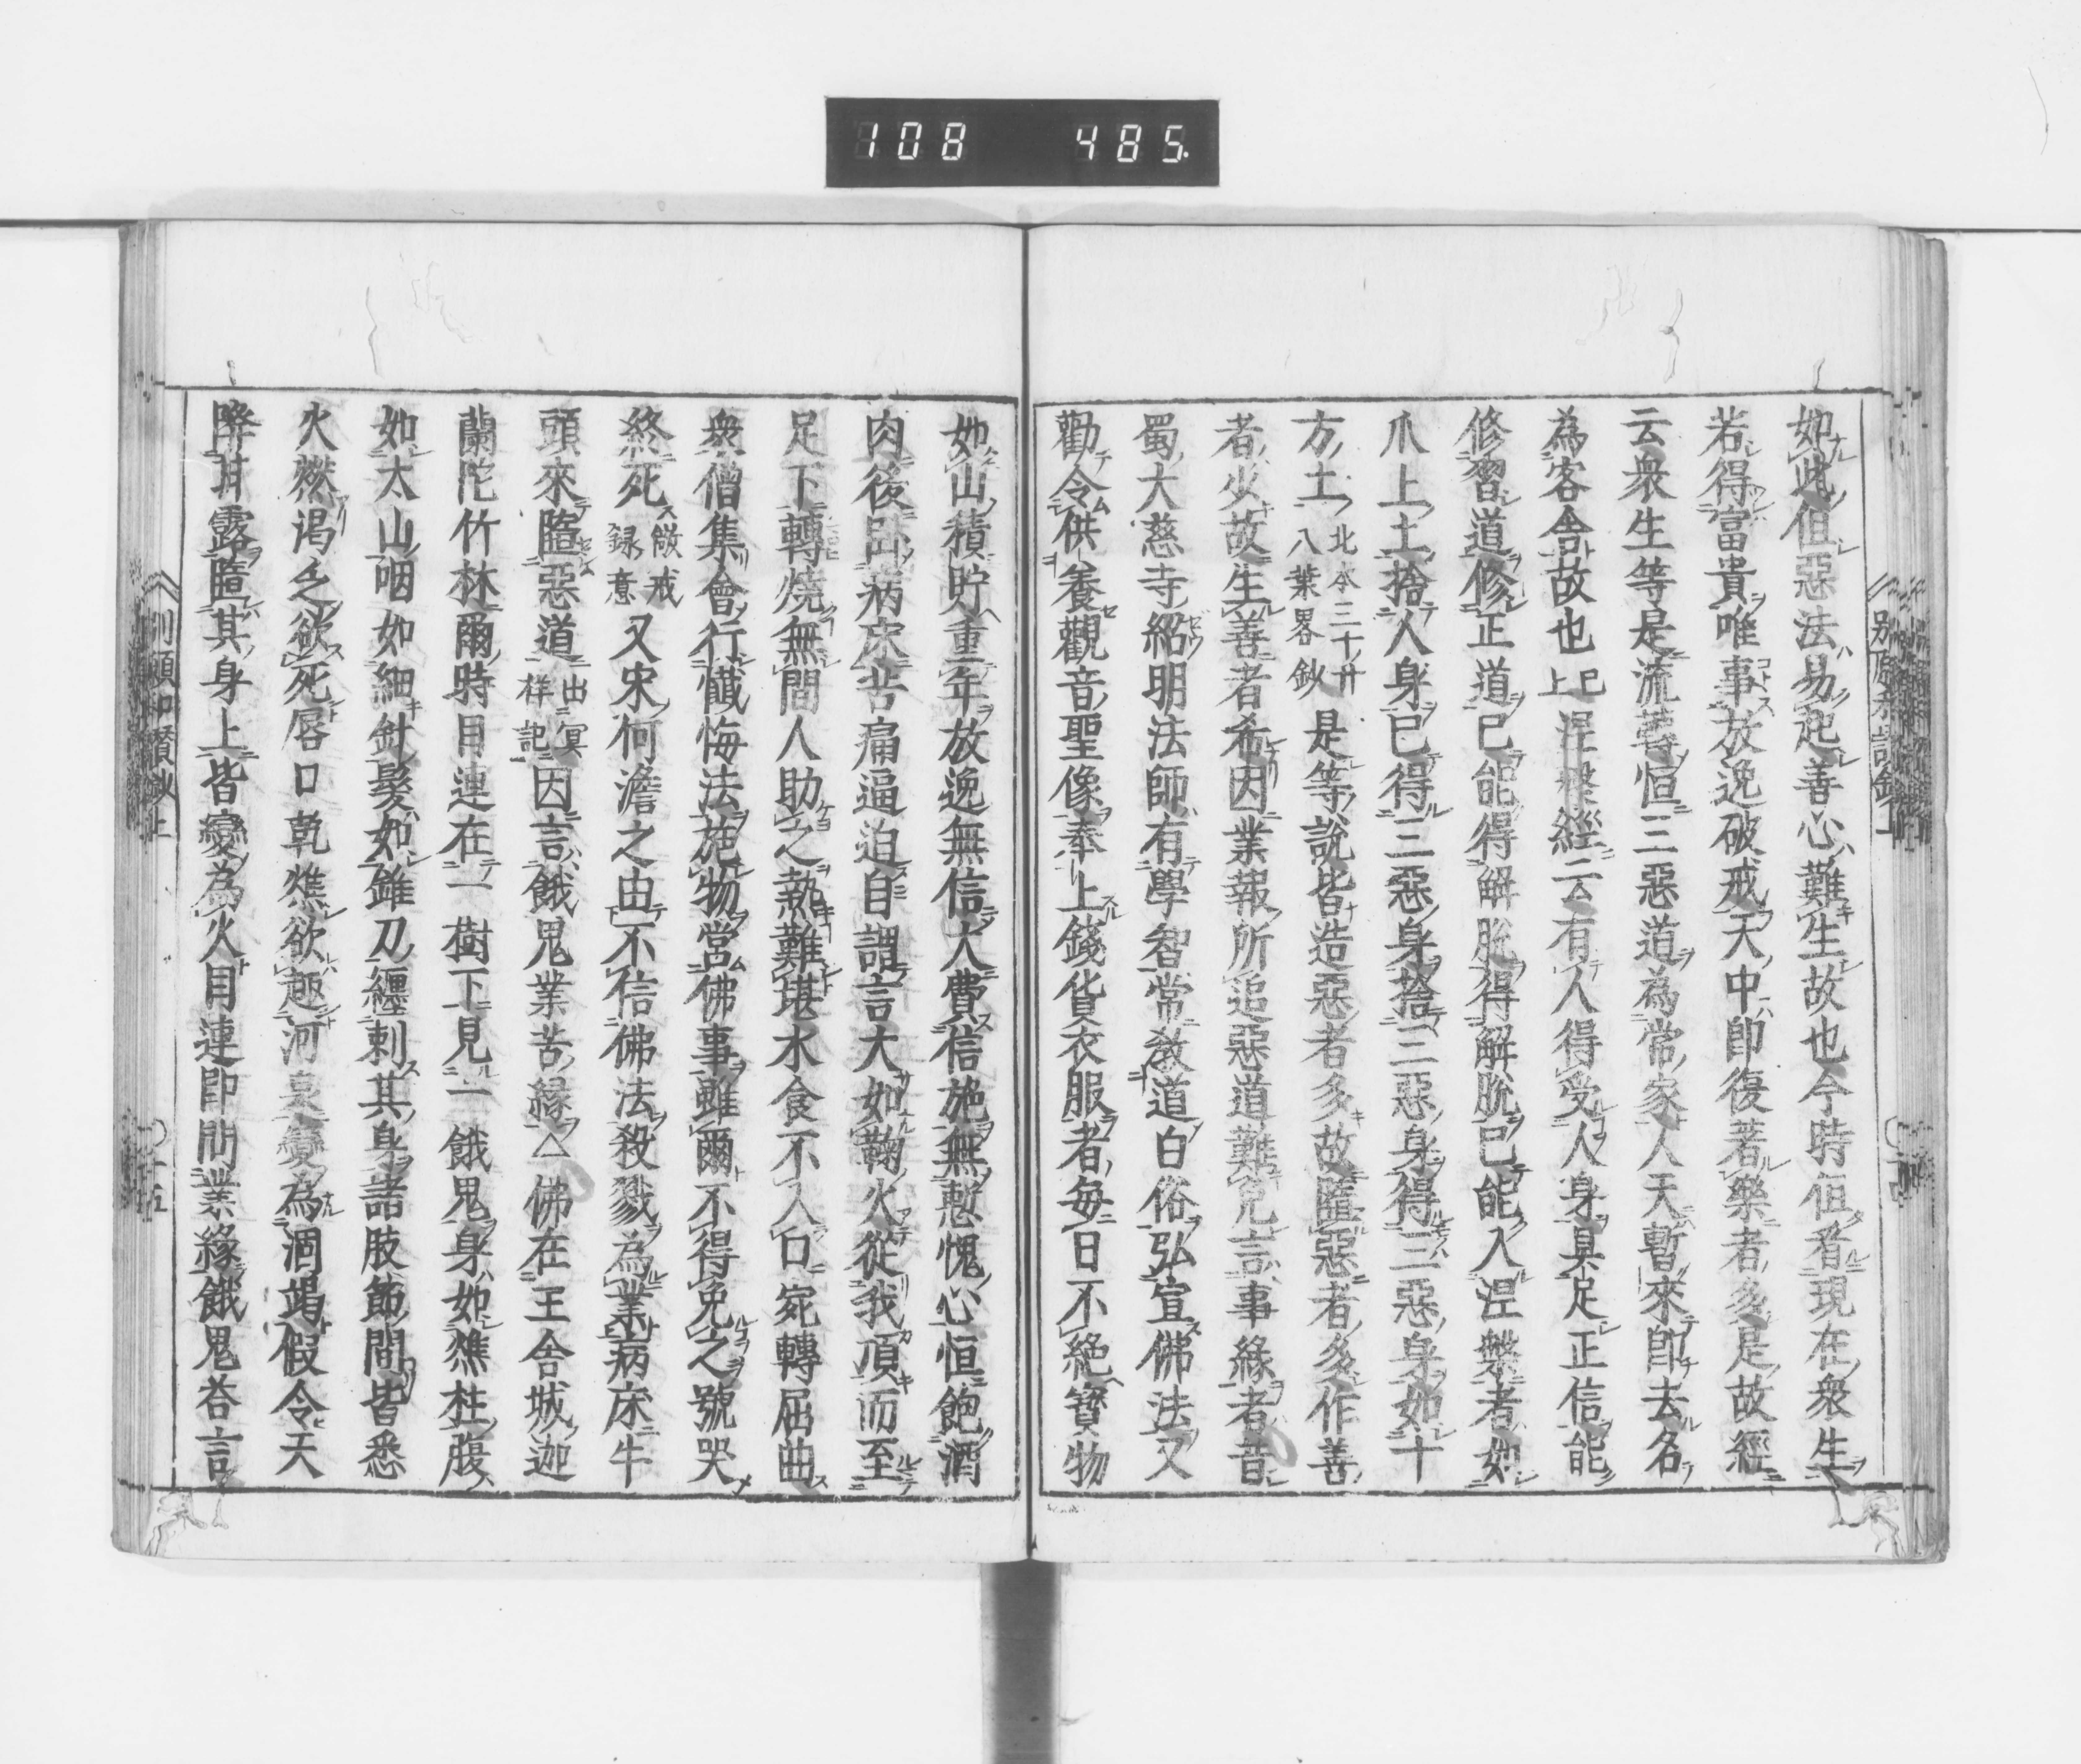 108 485
如此但惡法易起善心難生故也今時但看現在衆生
若得富貴唯事放逸破戒天中卽復著樂者多是故經
云衆生等是流轉恒三惡道為常家人天暫來卽去名
為客舍故也已上涅槃經云有人得受人身具足正信能
修習道修正道已能得解脫得解脫已能入涅槃者如
爪上土捨人身已得三惡身捨三惡身得三惡身如十
方土北本三十卅八葉畧鈔是等說皆造惡者多故隨惡者多作善
者少故生善者希因業報所追惡道難免言事緣者昔
蜀大慈寺紹明法師有學智常教道白俗弘宣佛法又
勸令供養觀音聖像奉上錢貨衣服者每日不絕寶物
如山積貯重年放逸無信人費信施無慙愧心恒飽酒
肉後臥病床苦痛逼迫自謂言大如鞠火從我頂而至
足下轉燒無間人助之熱難堪水食不入口宛轉屈曲
衆僧集會行懺悔法施物営佛事雖爾不得免之號哭
終死儆戒録意又宋何澹之由不信佛法殺戮為業病床牛
頭來隨惡道出冥祥記因言餓鬼業苦緣△佛在王舍城迦
蘭陀竹林爾時目連在一樹下見一餓鬼身如燋柱腹
如太山咽如細針髮如錐刀纏刺其身諸肢節間皆悉
火燃渇乏欲死唇口乾燋欲趣河泉變為涸竭假令天
降甘露隨其身上皆變為火目連卽問業緣餓鬼荅言